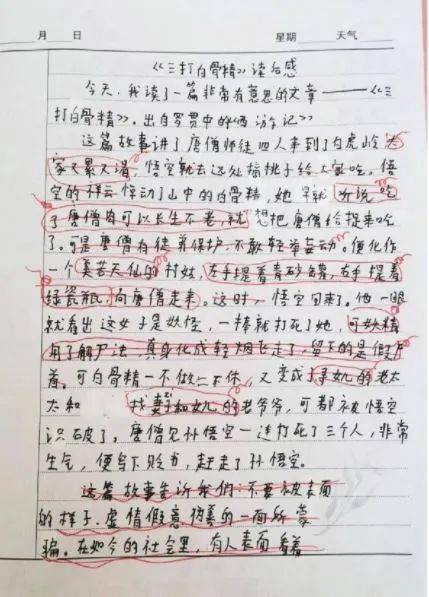 月 日 星期 天气
《三打白骨精》读后感
今天,我读了一篇非常有意思的文章——《三
打白骨精》。出自罗贯中的《西游记》
这篇故事讲了唐僧师徒四人来到了白虎岭,大
家又累又渴,悟空就去远处摘桃子给大家吃。悟
空的祥云惊动了山中的白骨精,她早就听说吃
了唐僧肉可以长生不老,就想把唐僧给捉来吃
了。可是唐僧有徒弟保护,不敢轻举妄动。便化作
一个美若天仙的村姑,左手提着青砂罐,右手提着
绿瓷瓶,向唐僧走来。这时,悟空回来了。他一眼
就看出这女子是妖怪,一棒就打死了她,可妖精
用了解尸法,真身化成轻烟飞走了,留下的是假尸
首。可白骨精一不做二不休,又变成了寻女儿的老太
太和 找妻子和女儿的老爷爷,可都被悟空
识破了。唐僧见孙悟空一连打死了三个人,非常
生气,便写下贬书,赶走了孙悟空。
这篇故事告诉我们:不要被表面
的样子、虚情假意伪善的一面所蒙
骗。在如今的社会里,有人表面看着